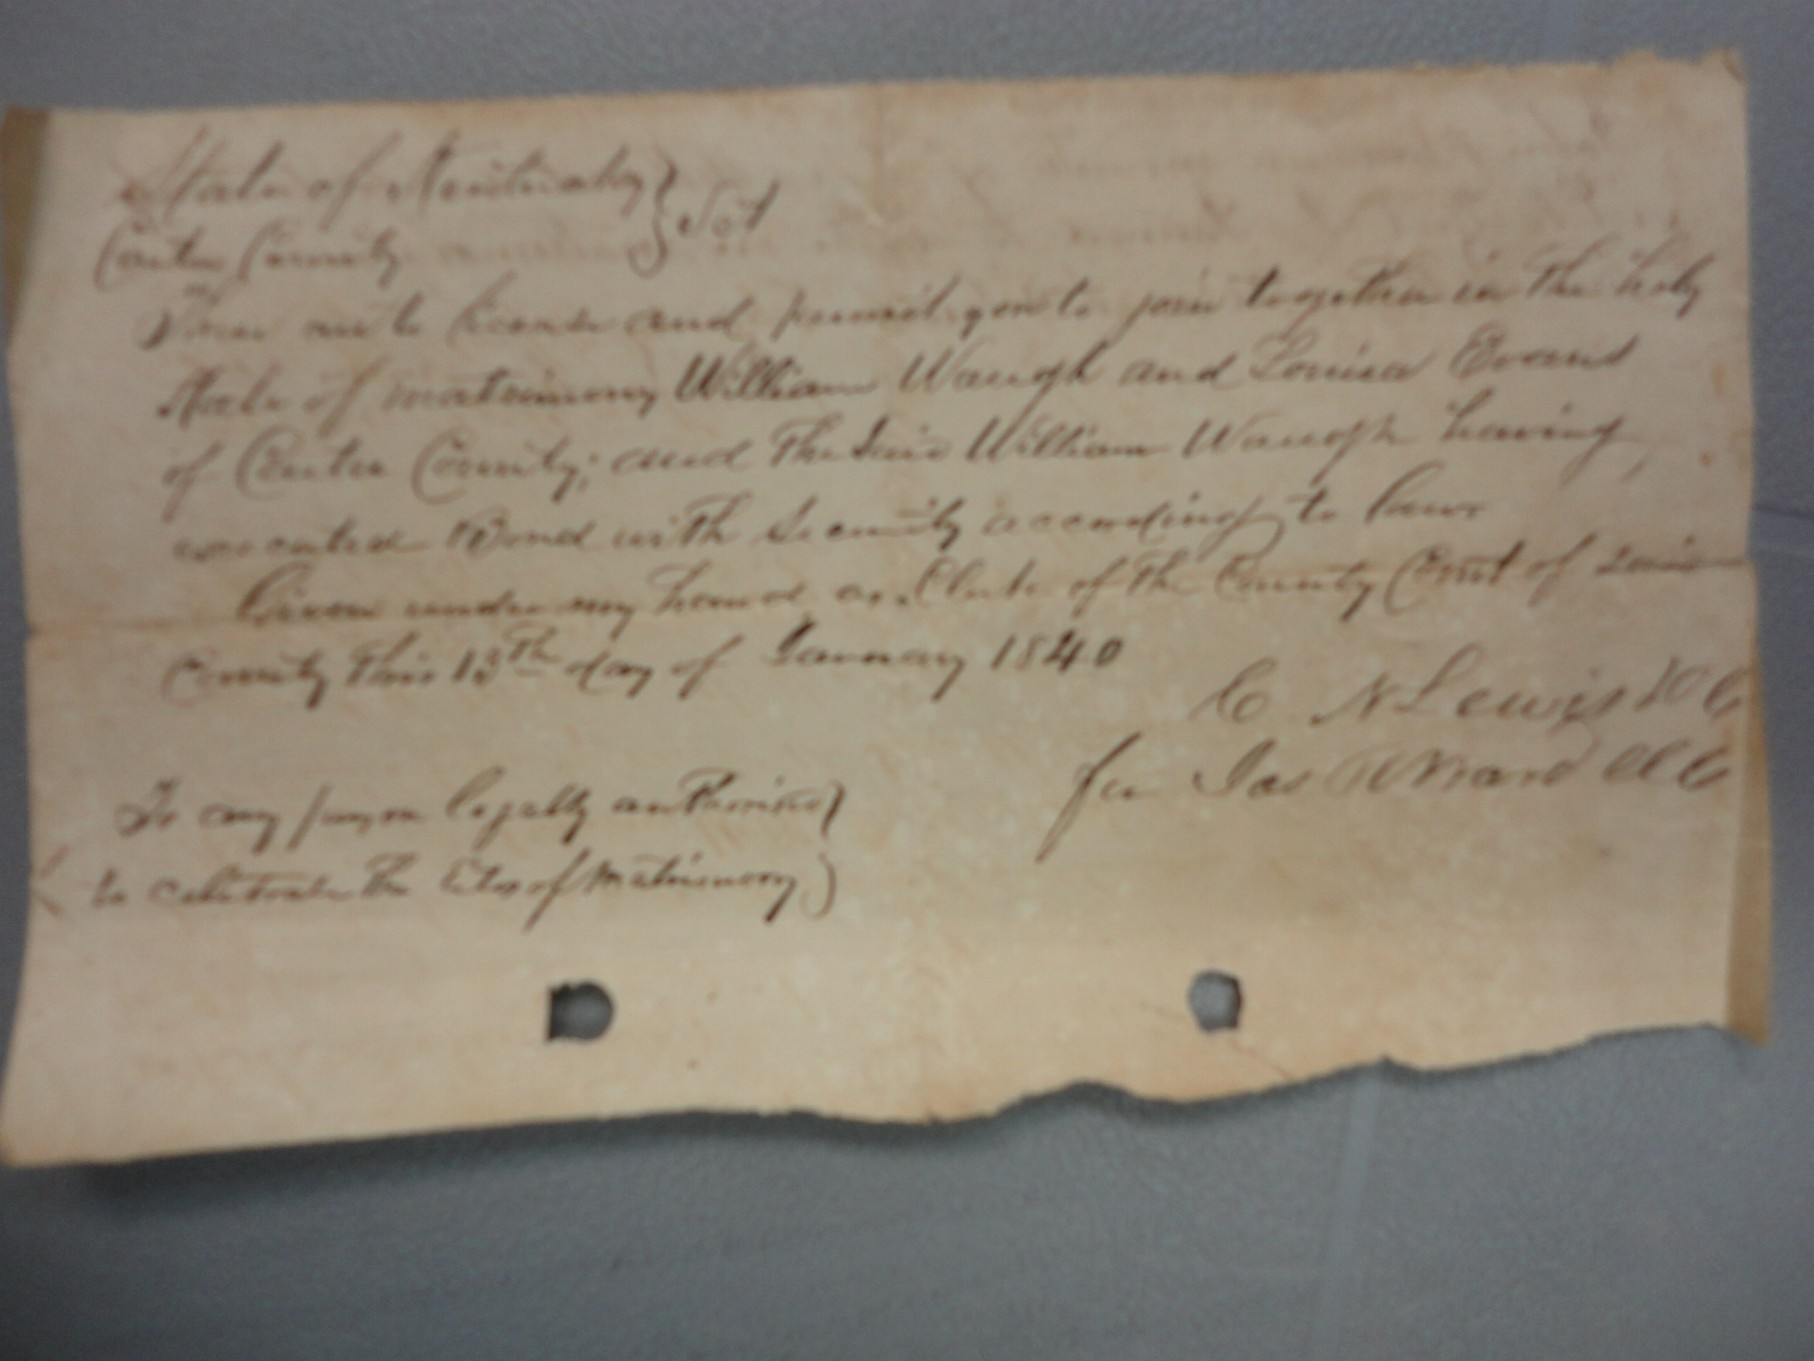 State of Kentucky } Sct
Carter County
These are to license and permit you to join together in the holy
State of matrimony William Waugh and Louisa Evans
of Carter County; and the said William Waugh having,
executed Bond with Security according to law.
Given under my hand as Clerk of the County Court of
County this 13th day of January 1840
C N Lewis D C
for Jas R Ward C C C
To any person legally authorised }
to celebrate the rites of Matrimony }